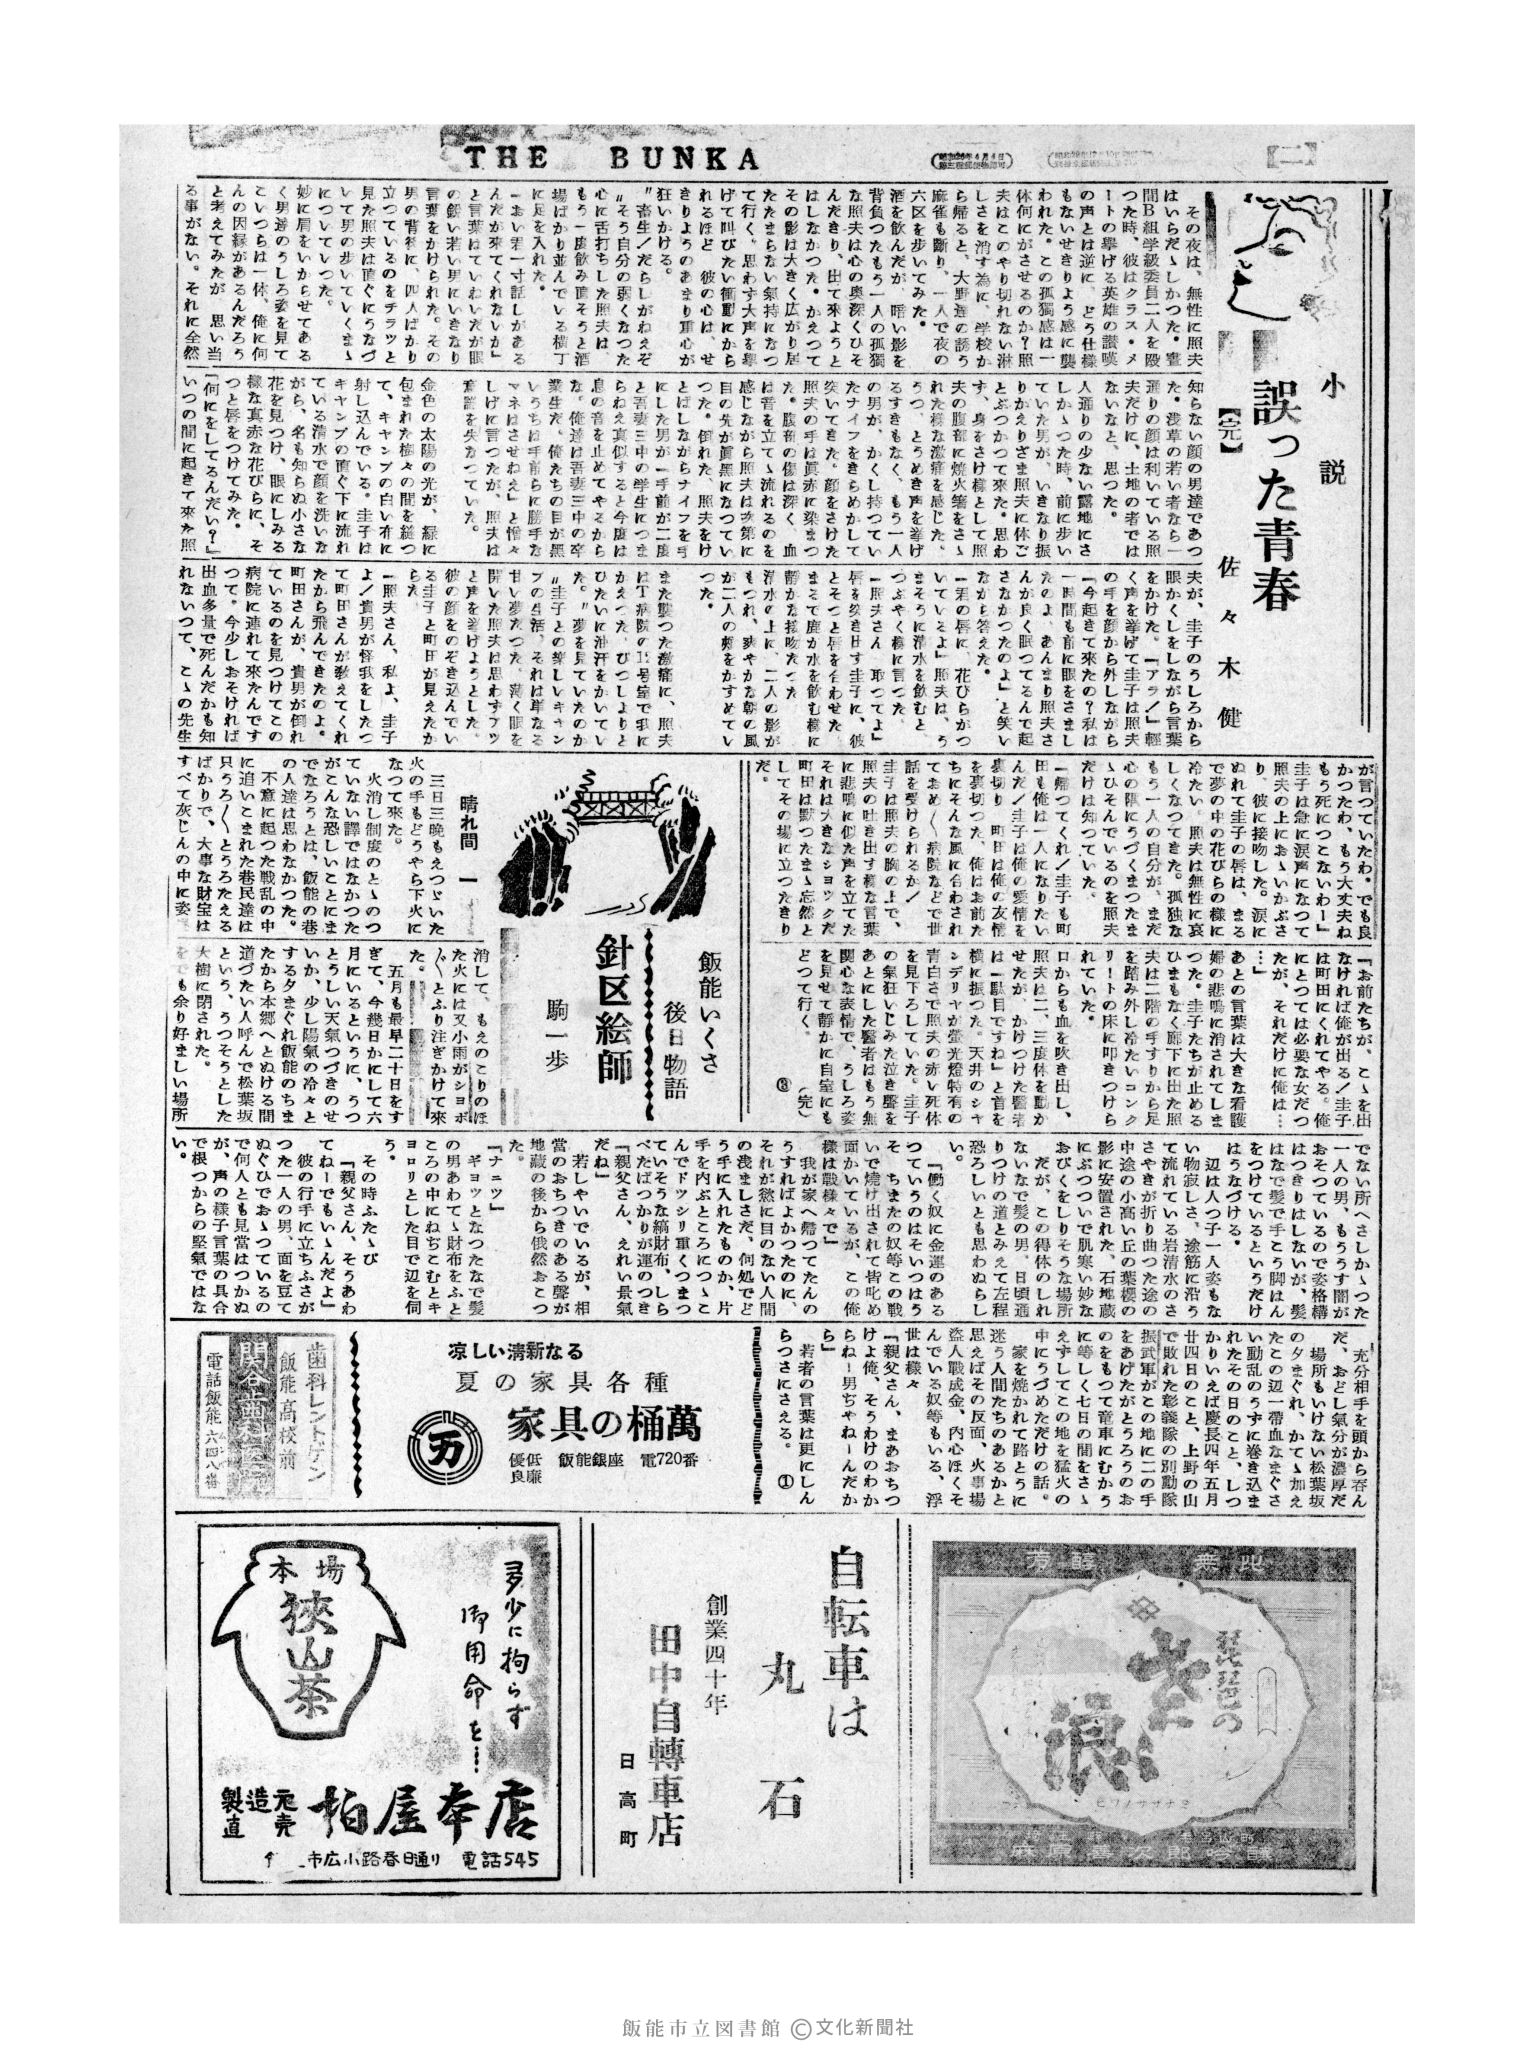 THE BUNKA
【二】
小説
誤った青春
【完】
佐々木健
その夜は、無性に照夫
はいらだゝしかつた。晝
間B組学級委員二人を殴
つた時、彼はクラス・メ
ートの擧げる英雄の讃嘆
の声とは逆に、どう仕様
もないせきりよう感に襲
われた。この孤獨感は一
体何にがさせるのか？照
夫はこのやり切れない淋
しさを消す為に、学校か
ら帰ると、大野達の誘う
麻雀も断り、一人で夜の
六区を歩いてみた。
酒を飲んだが、暗い影を
背負つたもう一人の孤獨
な照夫は心の奥深くひそ
んだきり、出て來ようと
はしなかつた。かえつて
その影は大きく広がり居
たたまらない氣持になつ
て行く。思わず大声を擧
げて叫びたい衝動にから
れるほど 彼の心は、せ
きりようのあまり重心が
狂いかける。
〝畜生！だらしがねえぞ
〟そう自分の弱くなつた
心に舌打ちした照夫は、
もう一度飲み直そうと酒
場ばかり並んでいる横丁
に足を入れた。
「おい君一寸話しがある
んだが來てくれないか」
と言葉はていねいだが眼
の鋭い若い男にいきなり
言葉をかけられた。その
男の背後に、四人ばかり
立つているのをチラッと
見た照夫は直ぐにうなづ
いて男の歩いていくまゝ
についていつた。
妙に肩をいからせてある
く男達のうしろ姿を見て
こいつらは一体、俺に何
んの因縁があるんだろう
と考えてみたが 思い当
る事がない。それに全然
知らない顔の男達であつ
た。浅草の若い者なら一
通りの顔は利いている照
夫だけに、土地の者では
ないなと、思つた。
人通りの少ない露地にさ
しかゝつた時、前に歩い
ていた男が、いきなり振
りかえりざま照夫に体ご
とぶつかつて來た。思わ
ず、身をさけ様として照
夫の腹部に焼火箸をさゝ
れた様な激痛を感じた。
ううつ、とうめき声を挙げ
るすきもなく、もう一人
の男が、かくし持つてい
たナイフをきらめかして
突いてきた。顔をさけた
照夫の手は眞赤に染まつ
た。腹部の傷は深く、血
は音を立てゝ流れるのを
感じながら照夫は次第に
目の先が眞黒になつてい
つた。倒れた、照夫をけ
とばしながらナイフを手
にした男が「手前が二度
と吾妻三中の学生につま
らねえ真似すると今度は
息の音を止めてやるから
な。俺達は吾妻三中の卒
業生だ、俺たちの目が黒
いうちは手前らに勝手な
マネはさせねえ」と憎々
しげに言つたが、照夫は
意識を失なつていた。
金色の太陽の光が、緑に
包まれた樹々の間を縫つ
て、キャンプの白い布に
射し込んでいる。圭子は
キャンプの直ぐ下に流れ
ている清水で顔を洗いな
がら、名も知らぬ小さな
花を見つけ、眼にしみる
様な真赤な花びらに、そ
つと唇をつけてみた。
「何にをしてるんだい？」
いつの間に起きて來た照
夫が、圭子のうしろから
眼かくしをしながら言葉
をかけた。「アラ！」輕
く声を挙げて圭子は照夫
の手を顔から外しながら
「今起きて來たの？私は
一時間も前に眼をさまし
たのよ、あんまり照夫さ
んが良く眠つてるんで起
さなかつたのよ」と笑い
ながら答えた。
「君の唇に、花びらがつ
いているよ」照夫は、う
まそうに清水を飲むと
つぶやく様に言つた。
「照夫さん 取つてよ」
唇を突き出す圭子に、彼
とそつと唇を合わせた
まるで鹿が水を飲む様に
静かな接吻だつた
清水の上に、二人の影が
もつれ、爽やかな朝の風
が二人の頬をかすめてい
つた。
また襲つた激痛に、照夫
はT病院の11号室で我に
かえつた。びつしよりと
ひたいに油汗をかいてい
た。〝夢を見ていたのか
〟圭子との楽しいキャン
プの生活、それは単なる
甘い夢だつた。薄く眼を
開いた照夫は思わずアッ
と声を挙げようとした。
彼の顔をのぞき込んでい
る圭子と町田が見えたか
らだ。
「照夫さん、私よ、圭子
よ！貴男が怪我をしたつ
て町田さんが教えてくれ
たから飛んできたのよ。
町田さんが、貴男が倒れ
ているのを見つけてこの
病院に連れて來たんです
つて。今少しおそければ
出血多量で死んだかも知
れないつて、こゝの先生
が言つていたわ。でも良
かつたわ、もう大丈夫ね
もう死につこないわー」
圭子は急に涙声になつて
照夫の上におゝいかぶさ
り、彼に接吻した。涙に
ぬれて圭子の唇は、まる
で夢の中の花びらの様に
冷たい。照夫は無性に哀
しくなつてきた。孤独な
もう一人の自分が、まだ
心の隅にうづくまつたま
ゝひそんでいるのを照夫
だけは知つていた。
「帰つてくれ！圭子も町
田も俺は一人になりたい
んだ！圭子は俺の愛情を
裏切り 町田は俺の友情
を裏切つた、俺はお前た
ちにそんな風に合わされ
ておめ〱病院などで世
話を受けられるか！
圭子は照夫の胸の上で、
照夫の吐き出す様な言葉
に悲鳴に似た声を立てた
それは大きなショックだ
町田は默つたまゝ忘然と
してその場に立つたきり
だ。
「お前たちが、こゝを出
なければ俺が出る！圭子
は町田にくれてやる。俺
にとつては必要な女だつ
たが、それだけに俺は…
…」
あとの言葉は大きな看護
婦の悲鳴に消されてしま
つた。圭子たちが止める
ひまもなく廊下に出た照
夫は二階の手すりから足
を踏み外し冷たいコンク
リートの床に叩きつけら
れていた。
口からも血を吹き出し、
照夫は二、三度体を動か
せたが、かけつけた醫者
は「駄目ですね」と首を
横に振つた。天井のシャ
ンデリヤが螢光燈特有の
青白さで照夫の赤い死体
を見下ろしていた。圭子
の氣狂いじみた泣き聲を
あとにした醫者はもう無
関心な表情で、うしろ姿
を見せて静かに自室にも
どつて行く。
（完）
③
飯能いくさ
後日物語
針区絵師
駒一歩
晴れ間 一
三日三晩もえつゞいた
火の手もどうやら下火に
なつて來た。
火消し制度のとゝのつ
ていない譯ではなかつた
がこんな恐しいことにま
でなろうとは、飯能の巷
の人達は思わなかつた。
不意に起つた戦乱の中
に追いこまれた巷民達は
只うろ〱とうろたえる
ばかりで、大事な財宝は
すべて灰じんの中に姿を
消して、もえのこりのほ
た火には又小雨がショボ
〱とふり注ぎかけて來
た。
五月も最早二十日をす
ぎて、今幾日かにして六
月にいるというに、うつ
とうしい天氣つづきのせ
いか、少し陽氣の冷々と
する夕まぐれ飯能のちま
たから本郷へとぬける間
道づたい人呼んで松葉坂
という、うつそうとした
大樹に閉された。
をでも余り好ましい場所
でない所へさしかゝつた
一人の男、もううす闇が
おそつているので姿格構
はつきりはしないが、髪
はなで髪で手こう脚はん
をつけているというだけ
はうなづける。
辺は人つ子一人姿もな
い物寂しさ、途筋に沿う
て流れている岩清水のさ
さやきが折り曲つた途の
中途の小高い丘の葉櫻の
影に安置された、石地蔵
にぶつついで肌寒い妙な
おびくをしりそうな場所
だが、この得体のしれ
ないなで髪の男。日頃通
りつけの道とみえて左程
恐ろしいとも思わぬらし
い。
「働く奴に金運のある
つていうのはそいつはう
そ ちまたの奴等この戦
いで燒け出されて皆叱め
面かいているが、この俺
様は戰様々で」
我が家へ帰つてたんの
うすればよかつたのに、
それが慾に目のない人間
の浅ましさだ、何処でど
う手に入れたものか、片
手を内ぶところにつゝこ
んでドッシリ重くつまつ
ていそうな縞財布、しら
べたばつかりが運のつき
「親父さん、えれい景氣
だね」
若しやいでいるが、相
當のおちつきのある聲が
地蔵の後から俄然おこつ
た。
「ナニッ」
ギョッとなつたなで髪
の男あわてゝ財布をふと
ころの中にねぢこむとキ
ョロリとした目で辺を伺
う。
その時ふたゝび
「親父さん、そうあわ
てねーでもいゝんだよ」
彼の行手に立ちふさが
つた一人の男、面を豆て
ぬぐひでおゝつているの
で何人とも見當はつかぬ
が、声の様子言葉の具合
で根つからの堅氣ではな
い。
充分相手を頭から呑ん
だ、おどし氣分が濃厚だ
場所もいけない松葉坂
の夕まぐれ、かてゝ加え
たこの辺一帶血なまぐさ
い動乱のうずに巻き込ま
れたその日のこと、しつ
かりいえば慶長四年五月
廿四日のこと、上野の山
で敗れた彰義隊の別動隊
振武軍がこの地に二の手
をあげたがとうろうのお
のをもつて竜車にむかう
に等しく七日の間をさゝ
えずしてこの地を猛火の
中にうづめただけの話。
家を焼かれて路とうに
迷う人間たちのあるかと
思えばその反面、火事場
盗人戰成金、内心ほくそ
んでいる奴等もいる、浮
世は様々
「親父さん、まあおちつ
けよ俺、そうわけのわか
らねー男ぢやねーんだか
ら」
若者の言葉は更にしん
らつさにさえる。
①
凉しい清新なる
夏の家具各種
万
家具の桶萬
優良 低廉 飯能銀座 電720番
歯科レントゲン
飯能高校前
関谷歯科
電話飯能六四八番
自転車は
丸石
創業四十年
田中自轉車店
日高町
本場
狭山茶
多少に拘らず
御用命を…
製造直売元
柏屋本店
市広小路春日通り 電話545
琵琶の
浪
飯能市立図書館 ©文化新聞社